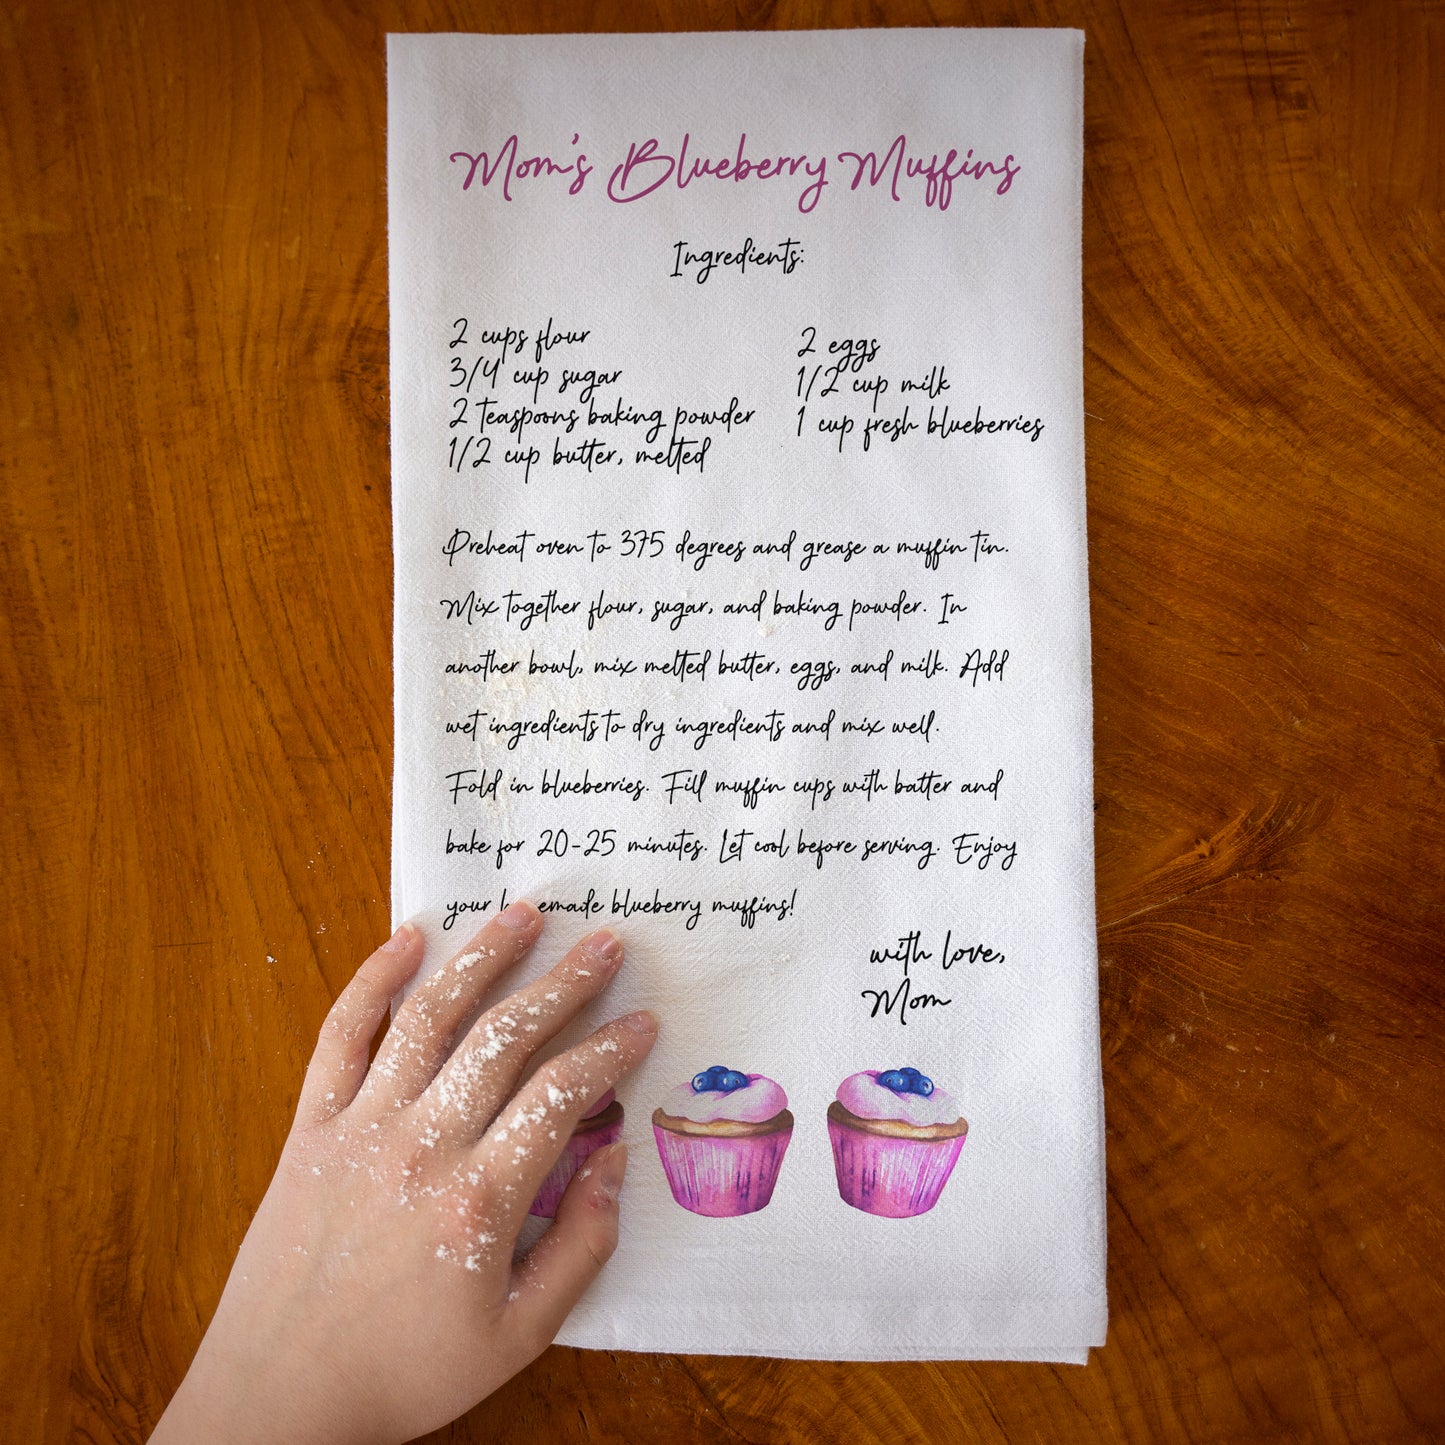 Mom's Blueberry Muffins
Ingredients:
2 cups flour
3/4 cup sugar
2 teaspoons baking powder
1/2 cup butter, melted
2 eggs
1/2 cup milk
1 cup fresh blueberries
Preheat oven to 375 degrees and grease a muffin tin.
Mix together flour, sugar, and baking powder. In
another bowl, mix melted butter, eggs, and milk. Add
wet ingredients to dry ingredients and mix well.
Fold in blueberries. Fill muffin cups with batter and
bake for 20-25 minutes. Let cool before serving. Enjoy
your blueberry muffins!
with love,
Mom